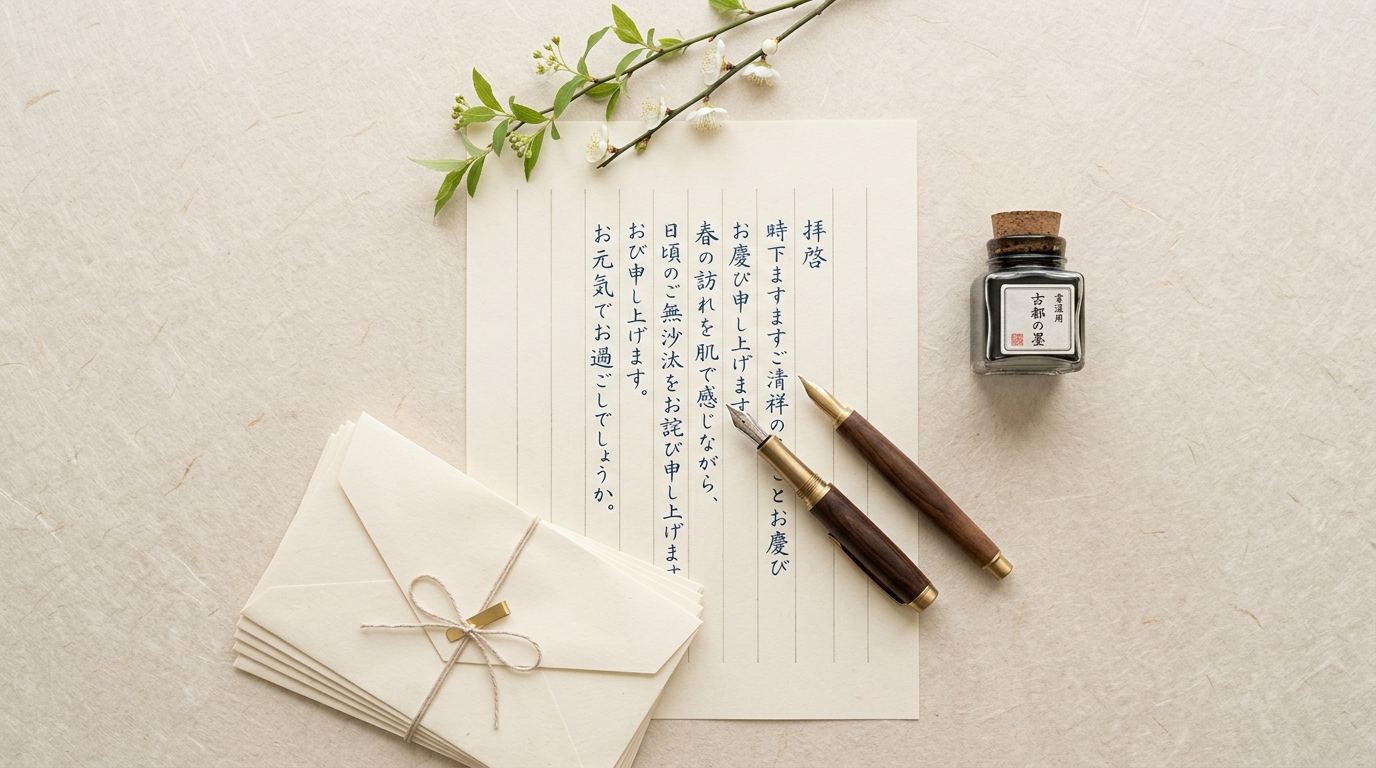 拝啓
時下ますますご清祥の とお慶び
お慶び申し上げます
春の訪れを肌で感じながら、
日頃のご無沙汰をお詫び申し上げます
おび申し上げます。
お元気でお過ごしでしょうか。
古都の墨